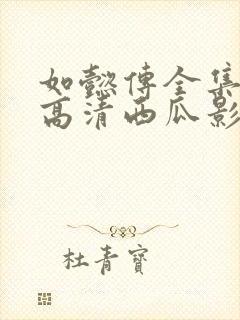 如懿传全集
高清西瓜影
杜青寶